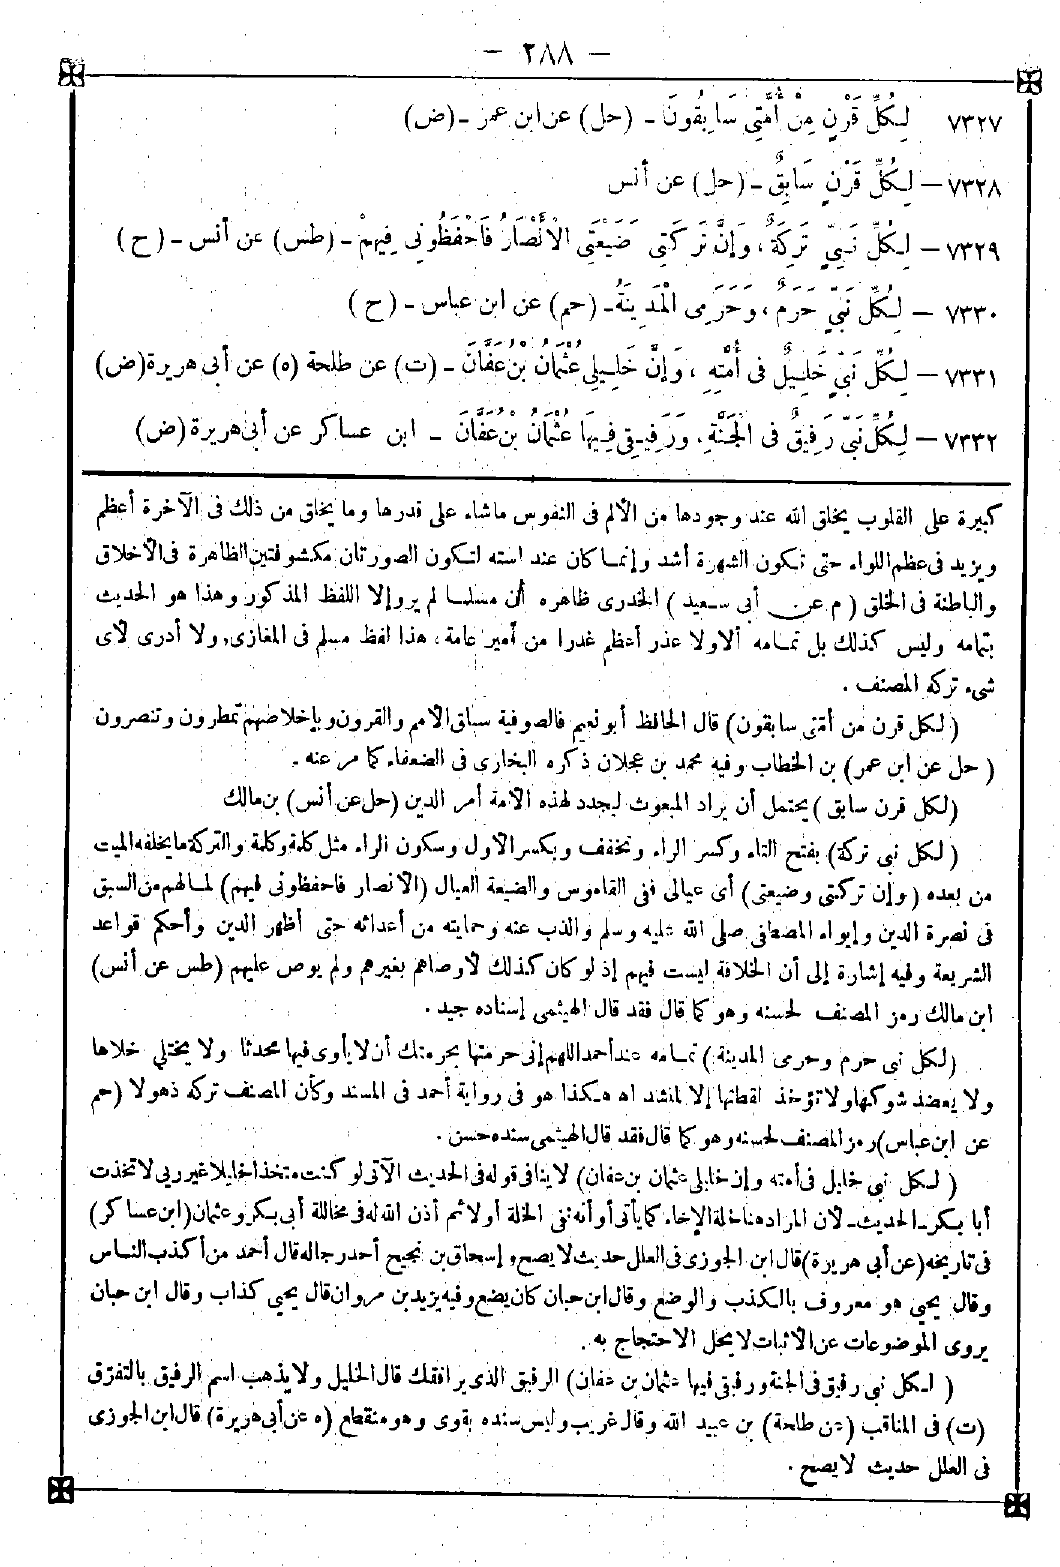 - ٢٨٨ -
٧٣٢٧ لِكُلِّ قَرْنٍ مِنْ أُمَّتِي سَابِقُونَ - (حل) عن ابن عمر - (ض)
٧٣٢٨ - لِكُلِّ قَرْنٍ سَابِقٌ - (حل) عن أنس
٧٣٢٩ - لِكُلِّ نَبِيٍّ تَرِكَةٌ، وَإِنَّ تَرِكَتِي ضَيْعَتِي الْأَنْصَارُ فَاحْفَظُونِي فِيهِمْ - (طس) عن أنس - (ح)
٧٣٣٠ - لِكُلِّ نَبِيٍّ حَرَمٌ، وَحَرَمِى الْمَدِينَةُ - (حم) عن ابن عباس - (ح)
٧٣٣١ - لِكُلِّ نَبِيٍّ خَلِيلٌ فى أُمَّتِهِ، وَإِنَّ خَلِيلِي عُثْمَانُ بْنُ عَفَّانَ - (ت) عن طلحة (ه) عن أبى هريرة (ض)
٧٣٣٢ - لِكُلِّ نَبِيٍّ رَفِيقٌ فى الْجَنَّةِ، وَرَفِيقِي فِيهَا عُثْمَانُ بْنُ عَفَّانَ - ابن عساكر عن أبى هريرة (ض)
كبيرة على القلوب يخلق الله عند وجودها من الألم فى النفوس ماشاء على قدرها وما يخلق من ذلك فى الآخرة أعظم
ويزيد فى عظم اللواء حتى تكون الشهرة أشد وإنما كان عند استه لتكون الصورتان مكشوفتين الظاهرة فى الأخلاق
والباطنة فى الخلق (م عن أبى سعيد) الخدرى ظاهره أن مسلما لم يرو إلا اللفظ المذكور وهذا هو الحديث
بتمامه وليس كذلك بل تمامه ألا ولا غدر أعظم غدرا من أمير عامة، هذا لفظ مسلم فى المغازى، ولا أدرى لأى
شىء تركه المصنف .
(لكل قرن من أمتى سابقون) قال الحافظ أبو نعيم فالصوفية سباق الأمم والقرون وبإخلاصهم تمطرون وتنصرون
(حل عن ابن عمر) بن الخطاب وفيه محمد بن عجلان ذكره البخارى فى الضعفاء كما مر عنه .
(لكل قرن سابق) يحتمل أن يراد المبعوث ليجدد لهذه الأمة أمر الدين (حل عن أنس) بن مالك
(لكل نبى تركة) بفتح التاء وكسر الراء وتخفف وبكسر الأول وسكون الراء مثل كلمة وكلمة والتركة ما يخلفه الميت
من بعده (وإن تركتى وضيعتى) أى عيالى ففى القاموس والضيعة العيال (الأنصار فاحفظونى فيهم) لما لهم من السبق
فى نصرة الدين وإيواء المصطفى صلى الله عليه وسلم والذب عنه وحمايته من أعدائه حتى أظهر الدين وأحكم قواعد
الشريعة وفيه إشارة إلى أن الخلافة ليست فيهم إذ لو كان كذلك لأوصاهم بغيرهم ولم يوص عليهم (طس عن أنس)
ابن مالك رمز المصنف لحسنه وهو كما قال فقد قال الهيثمى إسناده جيد .
(لكل نبى حرم وحرمى المدينة) تمامه عند أحمد اللهم إنى حرمتها بحرمتك أن لا يأوى فيها محدثا ولا يختلى خلاها
ولا يعضد شوكها ولا تؤخذ لقطتها إلا لمنشد اه هكذا هو فى رواية أحمد فى المسند وكأن المصنف تركه ذهولا (حم
عن ابن عباس) رمز المصنف لحسنه وهو كما قال فقد قال الهيثمى سنده حسن .
(لكل نبى خليل فى أمته وإن خليلى عثمان بن عفان) لا ينافى قوله فى الحديث الآتى لو كنت متخذا خليلا غير ربى لاتخذت
أبا بكر - الحديث - لأن المراد هنا خلة الإخاء كما يأتى أو أنه نفى الخلة أولا ثم أذن الله له فى مخاللة أبى بكر وعثمان (ابن عساكر)
فى تاريخه (عن أبى هريرة) قال ابن الجوزى فى العلل حديث لا يصح، إسحاق بن نجيح أحد رجاله قال أحمد من أكذب الناس
وقال يحيى هو معروف بالكذب والوضع وقال ابن حبان كان يضع وفيه يزيد بن مروان قال يحيى كذاب وقال ابن حبان
يروى الموضوعات عن الأثبات لا يحل الاحتجاج به .
(لكل نبى رفيق فى الجنة ورفيقى فيها عثمان بن عفان) الرفيق الذى يرافقك قال الخليل ولا يذهب اسم الرفيق بالتفرق
(ت) فى المناقب (عن طلحة) بن عبيد الله وقال غريب وليس سنده بقوى وهو منقطع (ه عن أبى هريرة) قال ابن الجوزى
فى العلل حديث لا يصح .